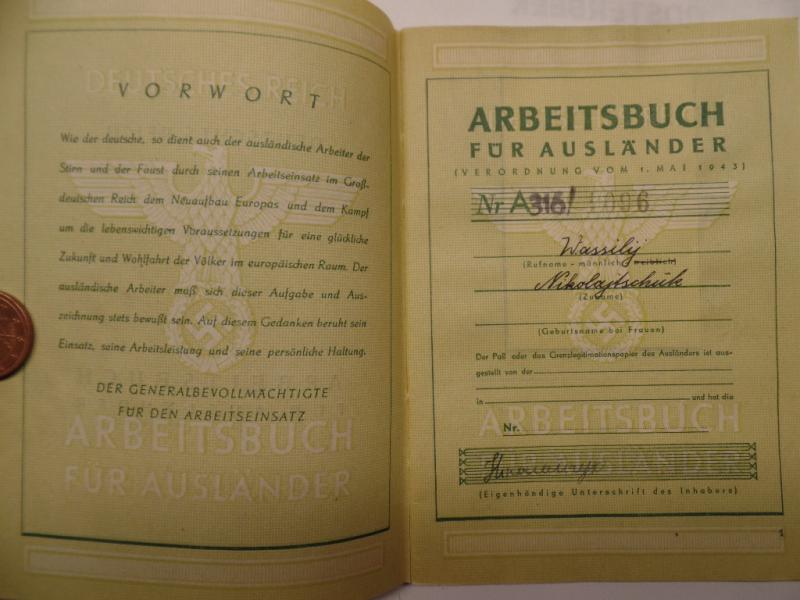 OOSTERBEEK
DEUTSCHES REICH
VORWORT
Wie der deutsche, so dient auch der ausländische Arbeiter der
Stirn und der Faust durch seinen Arbeitseinsatz im Groß-
deutschen Reich dem Neuaufbau Europas und dem Kampf
um die lebenswichtigen Voraussetzungen für eine glückliche
Zukunft und Wohlfahrt der Völker im europäischen Raum. Der
ausländische Arbeiter muß sich dieser Aufgabe und Aus-
zeichnung stets bewußt sein. Auf diesem Gedanken beruht sein
Einsatz, seine Arbeitsleistung und seine persönliche Haltung.
DER GENERALBEVOLLMÄCHTIGTE
FÜR DEN ARBEITSEINSATZ
ARBEITSBUCH
FÜR AUSLÄNDER
ARBEITSBUCH
FÜR AUSLÄNDER
(VERORDNUNG VOM 1. MAI 1943)
Nr A316/ 1096
Wassilij
(Rufname - männlich, weiblich)
Nikolajtschuk
(Zuname)
(Geburtsname bei Frauen)
Der Paß oder das Grenzlegitimationspapier des Ausländers ist aus-
gestellt von der
in und hat die
ARBEITSBUCH
Nr.
FÜR AUSLÄNDER
(Eigenhändige Unterschrift des Inhabers)
1